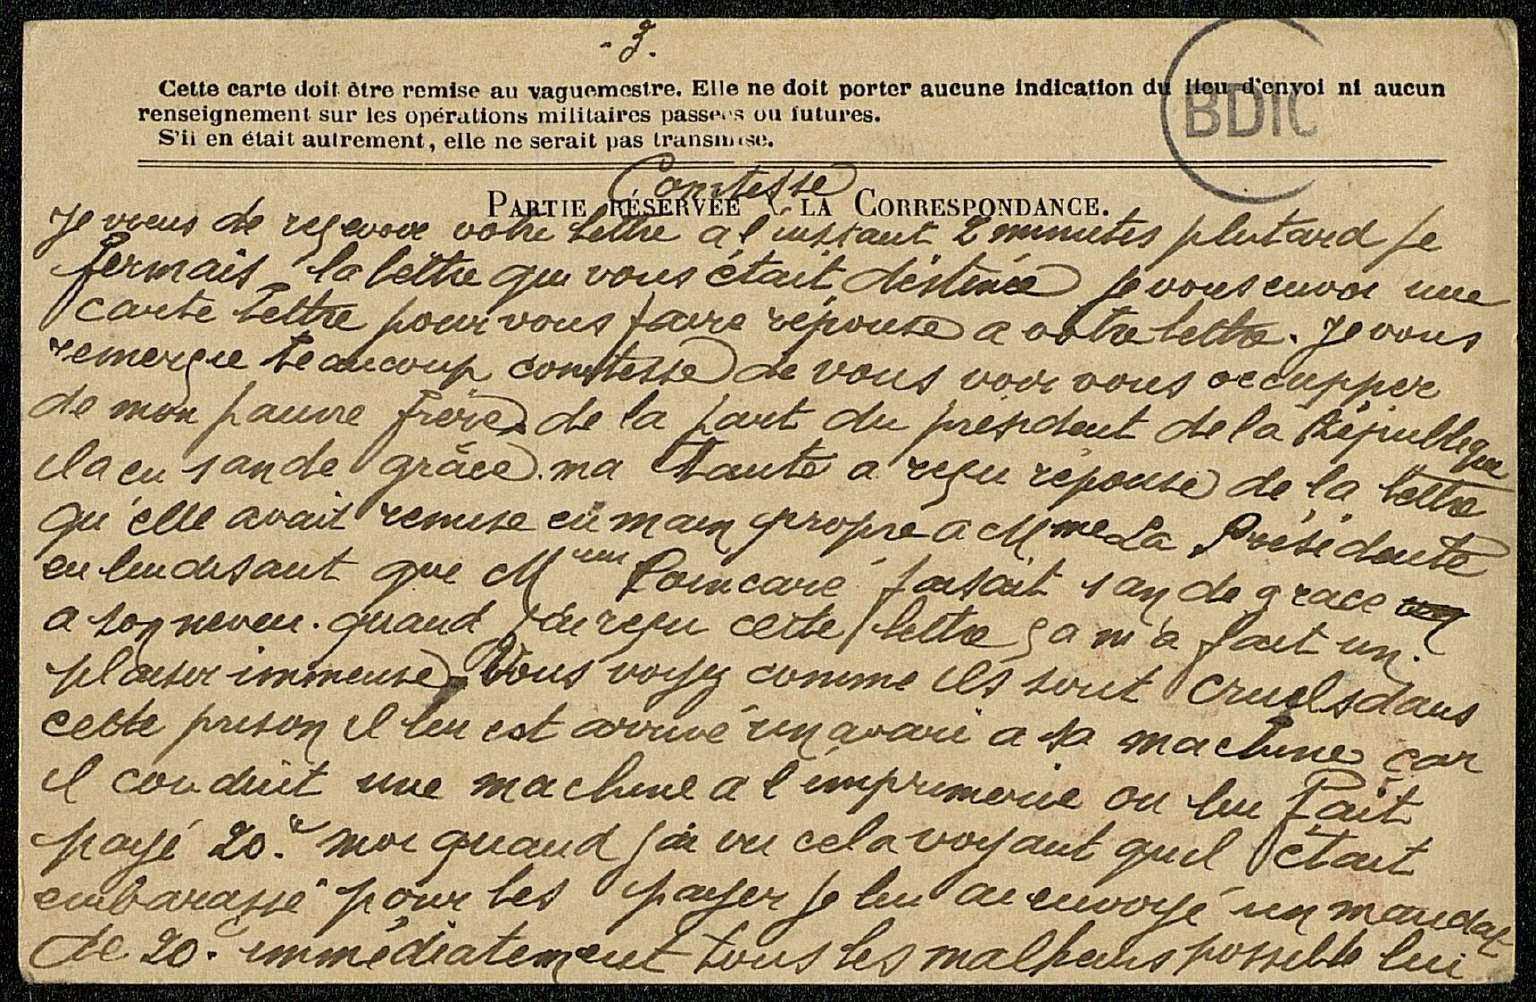 - 3 -
Cette carte doit être remise au vaguemestre. Elle ne doit porter aucune indication du lieu d'envoi ni aucun
renseignement sur les opérations militaires passées ou futures.
S'il en était autrement, elle ne serait pas transmise.
BDIC
Comtesse
PARTIE RÉSERVÉE À LA CORRESPONDANCE.
Je viens de reçevoir votre lettre a l'instant 2 minutes plutard je
fermais la lettre qui vous était déstinée je vous envoi une
carte lettre pour vous faire réponse a votre lettre. Je vous
remerçie beaucoup comtesse de vous voir vous occupper
de mon pauvre frère de la part du président de la République
il a eu 1 an de grâce. ma tante a reçu réponse de la lettre
qu'elle avait remise en main propre a Mme La Présidente
en lui disant que Mr Poincaré faisait 1 an de grace
a son neveu. quand j'ai reçu cette lettre ça m'a fait un
plaisir immense. Vous voyez comme ils sont cruels dans
cette prison il lui est arrivé un avarie a sa machine car
il conduit une machine a l'imprimerie on lui fait
payé 20f. moi quand j'ai vu cela voyant quil était
embarassé pour les payer je lui ai envoyé un mandat
de 20f. immédiatement tous les malheurs possible lui